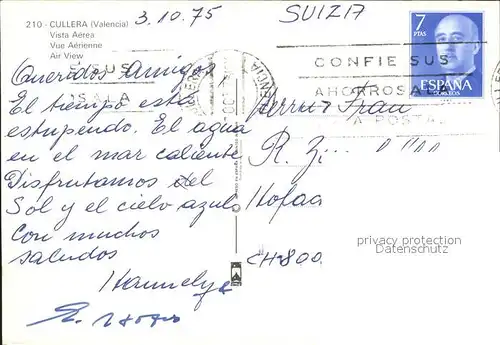 210 - CULLERA (Valencia)
Vista Aérea
Vue Aérienne
Air View
3.10.75
SUIZA
7
PTAS
ESPAÑA
CORREOS
CONFIE SUS
AHORROS A LA
A POSTAL
Queridos Amigos
El tiempo esta
estupendo. El agua
en el mar caliente
Disfrutamos del
Sol y el cielo azul
Con muchos
saludos
Herrn + Frau
R.
CH-800
privacy protection
Datenschutz